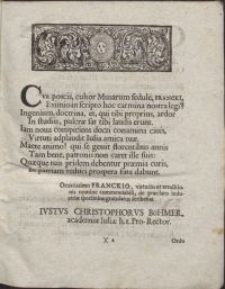 CVr poscis, cultor Musarum sedule, FRANCKI,
Eximio in scripto hoc carmina nostra legi?
Ingenium, doctrina, et, qui tibi proprius, ardor
In studiis, pulcræ sat tibi laudis erunt.
Iam noua conspiciens docti conamina ciuis,
Virtuti adplaudit Iulia amica tuæ.
Macte animo! qui se gerit florentibus annis
Tam bene, patronis non caret ille suis:
Quæque tuis pridem debentur præmia curis,
In patriam reduci prospera fata dabunt.
Ornatissimo FRANCKIO, virtutis et eruditionis
nomine commendabili, de præclaro
specimine gratulatur
IVSTVS CHRISTOPHORVS BöHMER,
academiæ Iuliæ h. t. Pro-Rector.